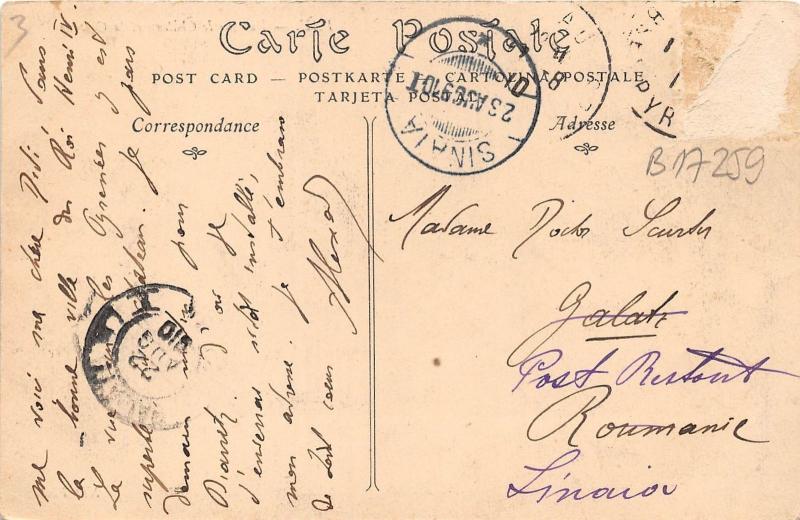 3
Carte Postale
POST CARD — POSTKARTE — CARTOLINA POSTALE
TARJETA POSTAL
Correspondance
Adresse
SINAIA
23 AUG 910
B17259
me voici ma chère dans
la bonne ville du Roi Henri IV.
La vue les Pyrénées y est
superbe château. Je pars
demain pour
Biarritz où je
t'enverrai sitôt installé,
mon adresse. Je t'embrasse
de tout cœur
Madame
Galatz
Post Restant
Roumanie
Sinaia